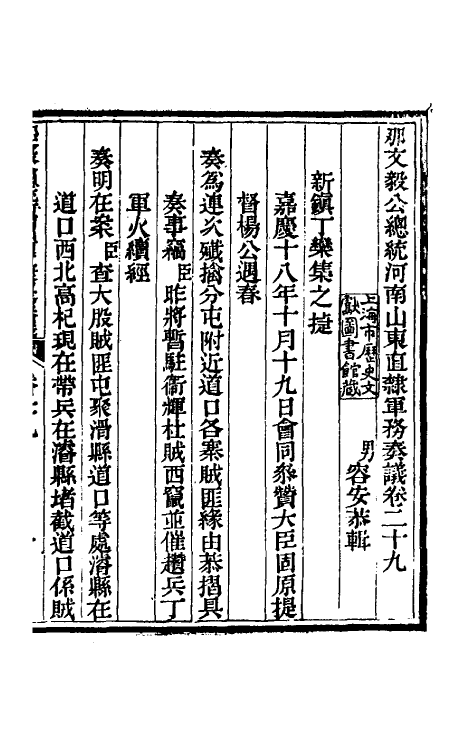 那文毅公總統河南山東直隸軍務奏議卷二十九
男容安恭輯
上海市歷史文
獻圖書館藏
新鎮丁欒集之捷
嘉慶十八年十月十九日會同叅贊大臣固原提
督楊公遇春
奏爲連次殲擒分屯附近道口各寨賊匪緣由恭摺具
奏事竊臣昨將暫駐衞輝杜賊西竄並催趲兵丁
軍火續經
奏明在案臣查大股賊匪屯聚滑縣道口等處濬縣在
道口西北高杞現在帶兵在濬縣堵截道口係賊